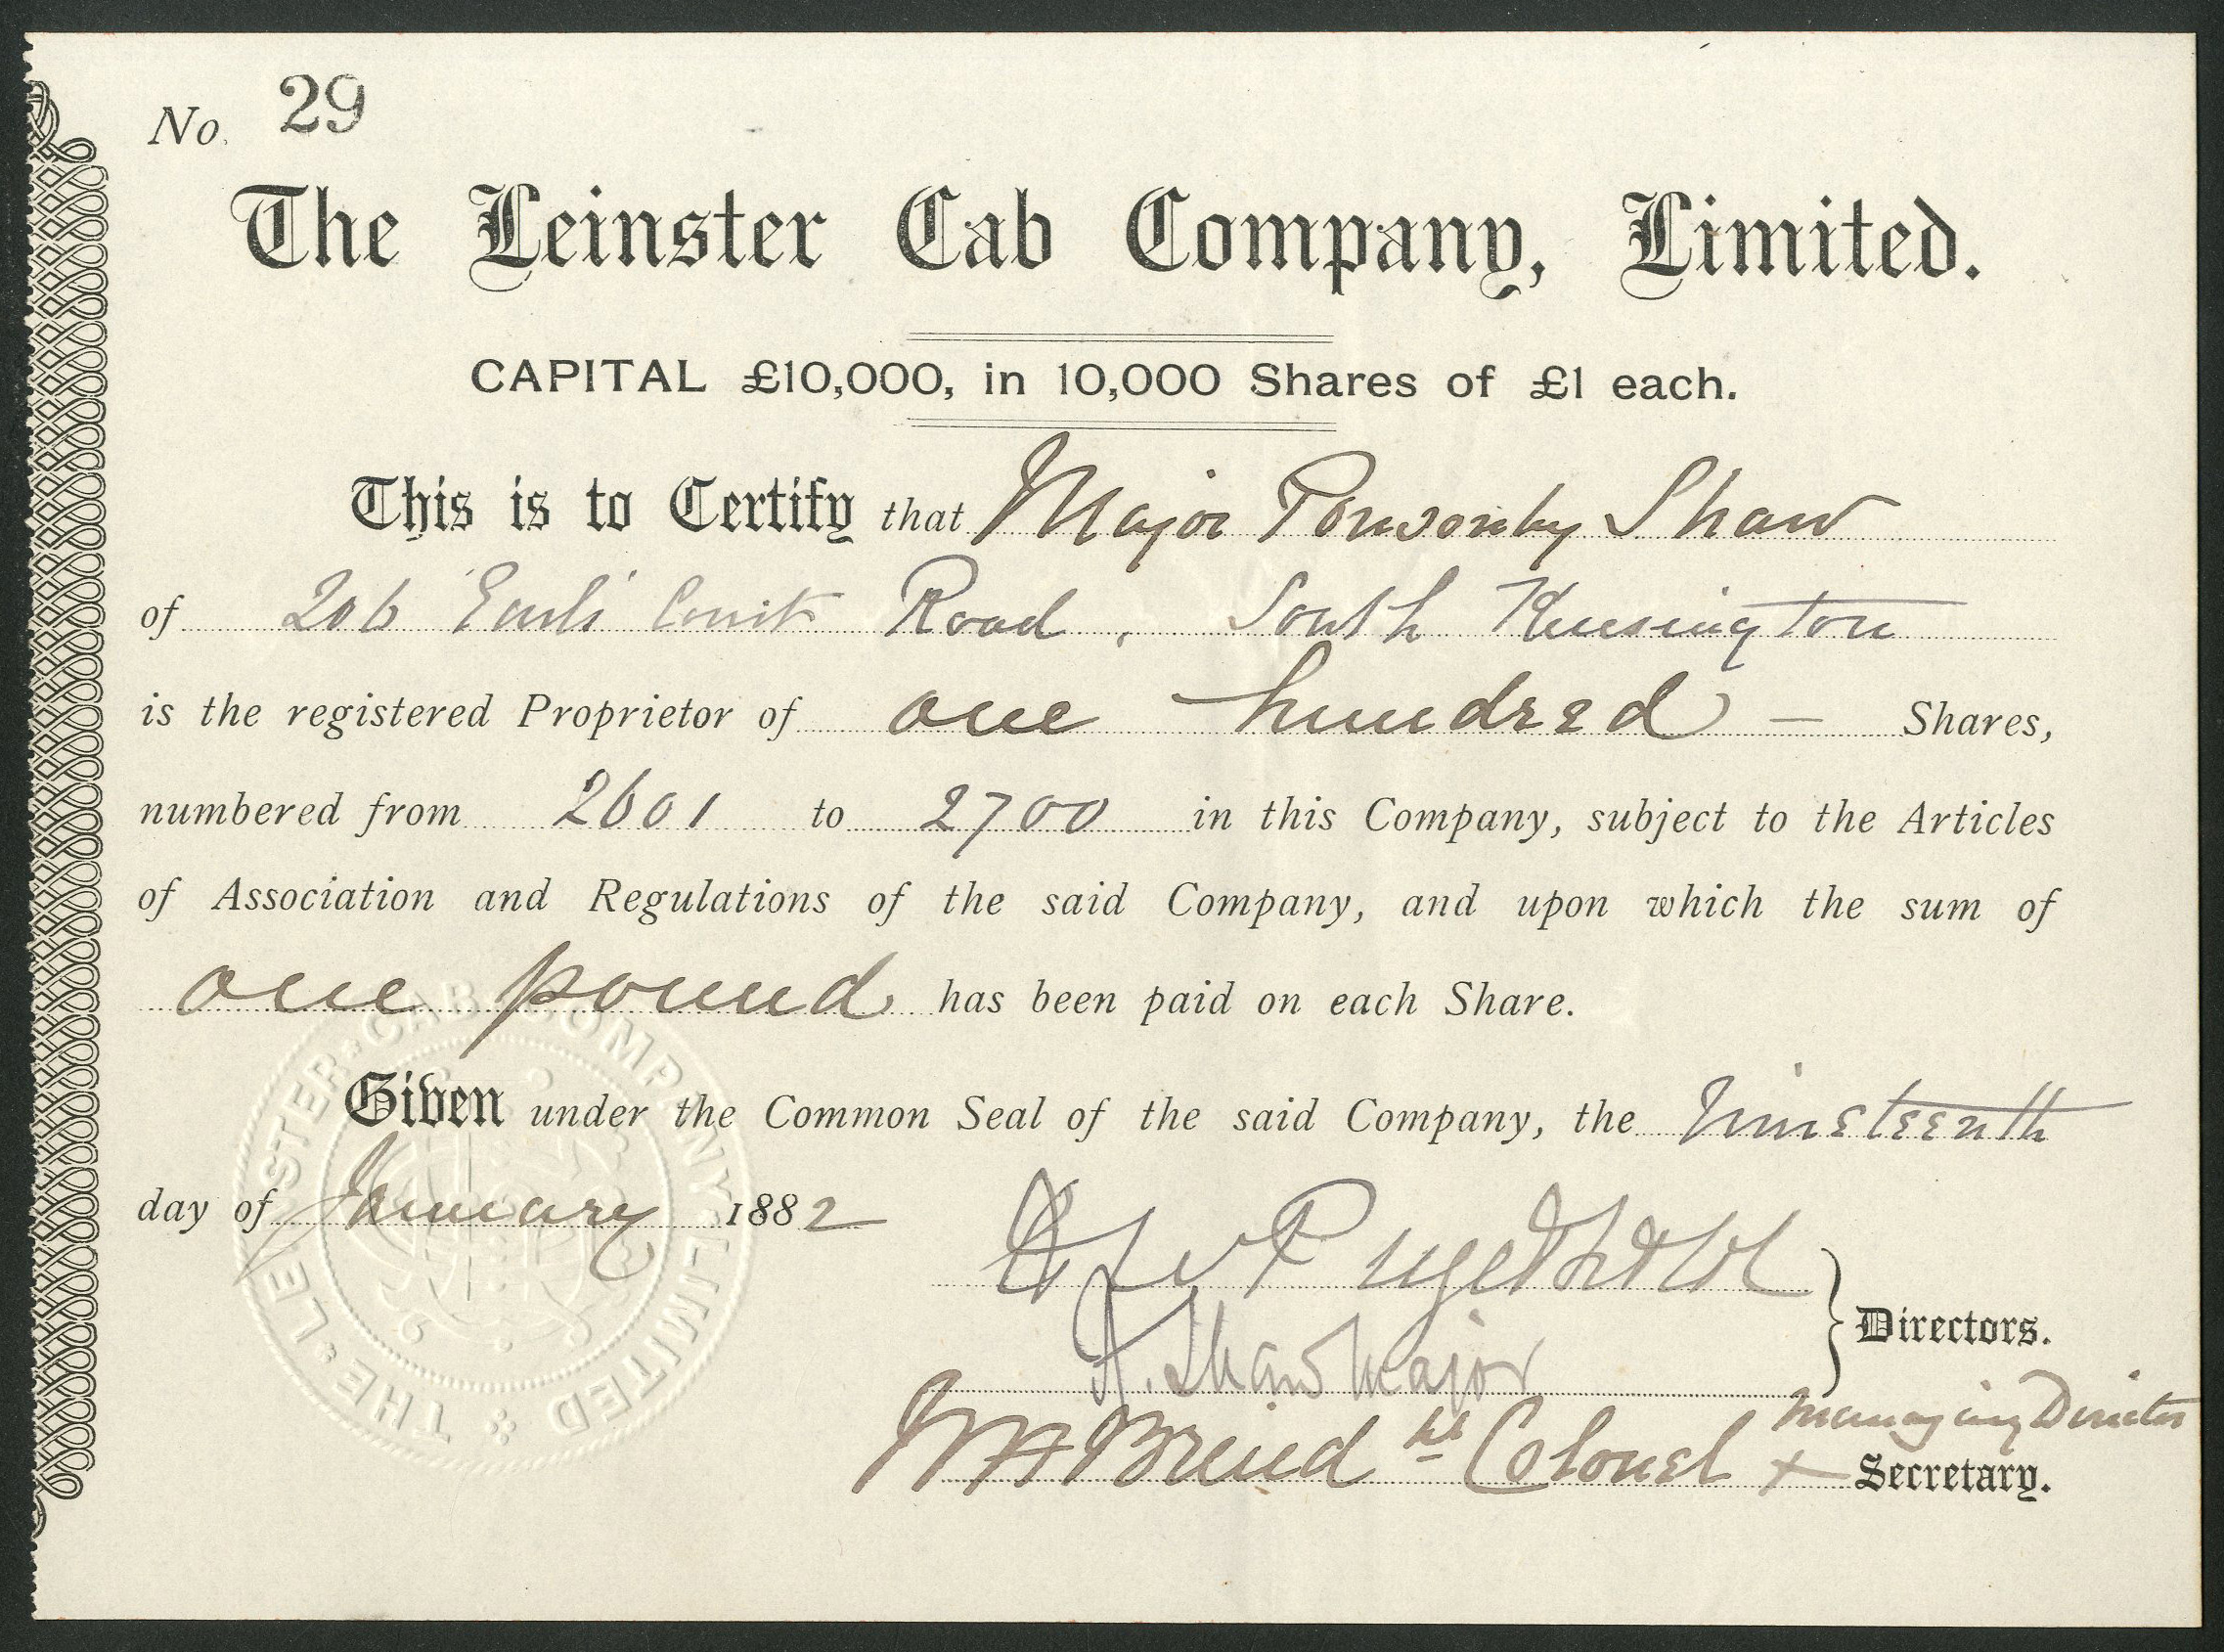 No. 29
The Leinster Cab Company, Limited.
CAPITAL £10,000, in 10,000 Shares of £1 each.
This is to Certify that Major Ponsonby Shaw
of 206 Earls Court Road, South Kensington
is the registered Proprietor of one hundred — Shares,
numbered from 2601 to 2700 in this Company, subject to the Articles
of Association and Regulations of the said Company, and upon which the sum of
one pound has been paid on each Share.
Given under the Common Seal of the said Company, the Nineteenth
day of January 1882
Directors.
A. Shaw Major
Managing Director
Lt Colonel + Secretary.
THE · LEINSTER · CAB · COMPANY · LIMITED